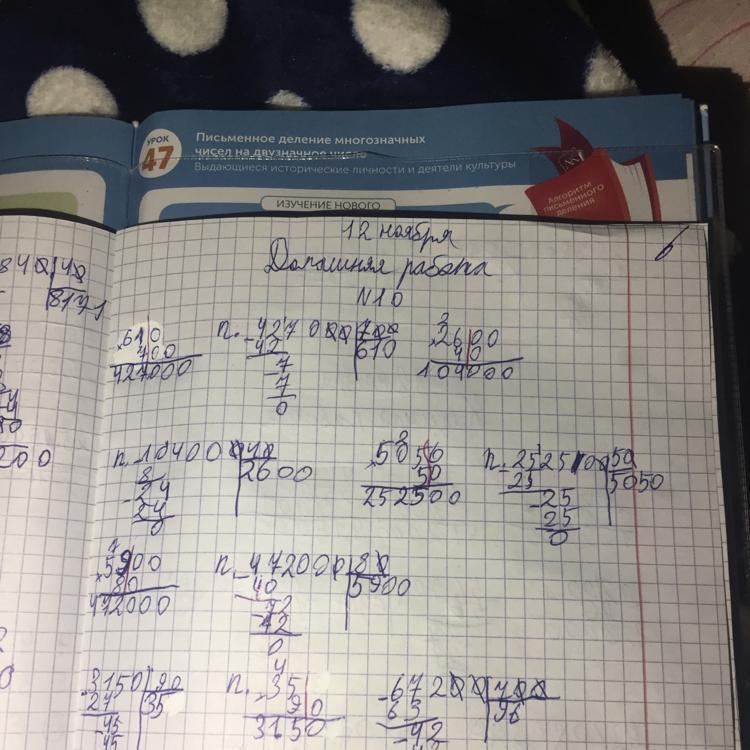 УРОК
47
Письменное деление многозначных
чисел на двузначное число
Выдающиеся исторические личности и деятели культуры
Алгоритм
письменного
деления
ИЗУЧЕНИЕ НОВОГО
12 ноября
Домашняя работа
N10
×610
700
427000
п. -427000 700
42 610
-7
7
0
3
×2600
40
104000
п. 104000 40
8 2600
-24
24
0
2
×5050
50
252500
п. -252500 50
25 5050
-25
25
0
7
×5900
80
472000
п. -472000 80
40 5900
-72
72
0
-3150 90
27 35
-45
45
п. 4
35
90
3150
-67200 700
63 96
-42